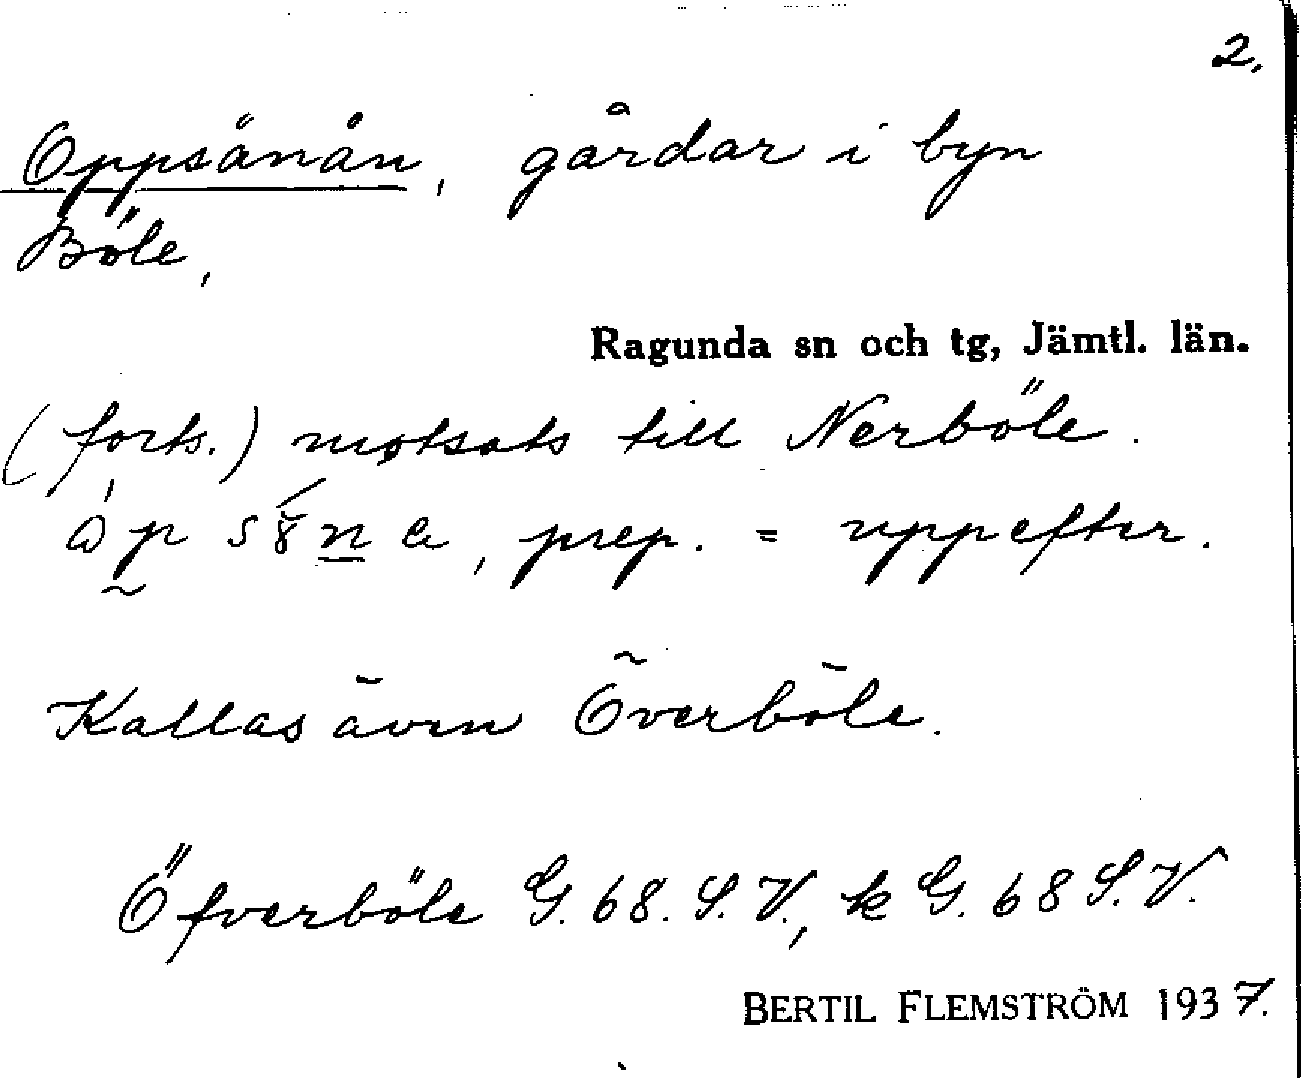 2.
Oppsånån, gårdar i byn
Böle,
Ragunda sn och tg, Jämtl. län.
(forts.) motsats till Nerböle.
prep. = uppefter.
Kallas även Överböle.
Öfverböle G. 68. S. V., k G. 68 S. V.
BERTIL FLEMSTRÖM 1937.